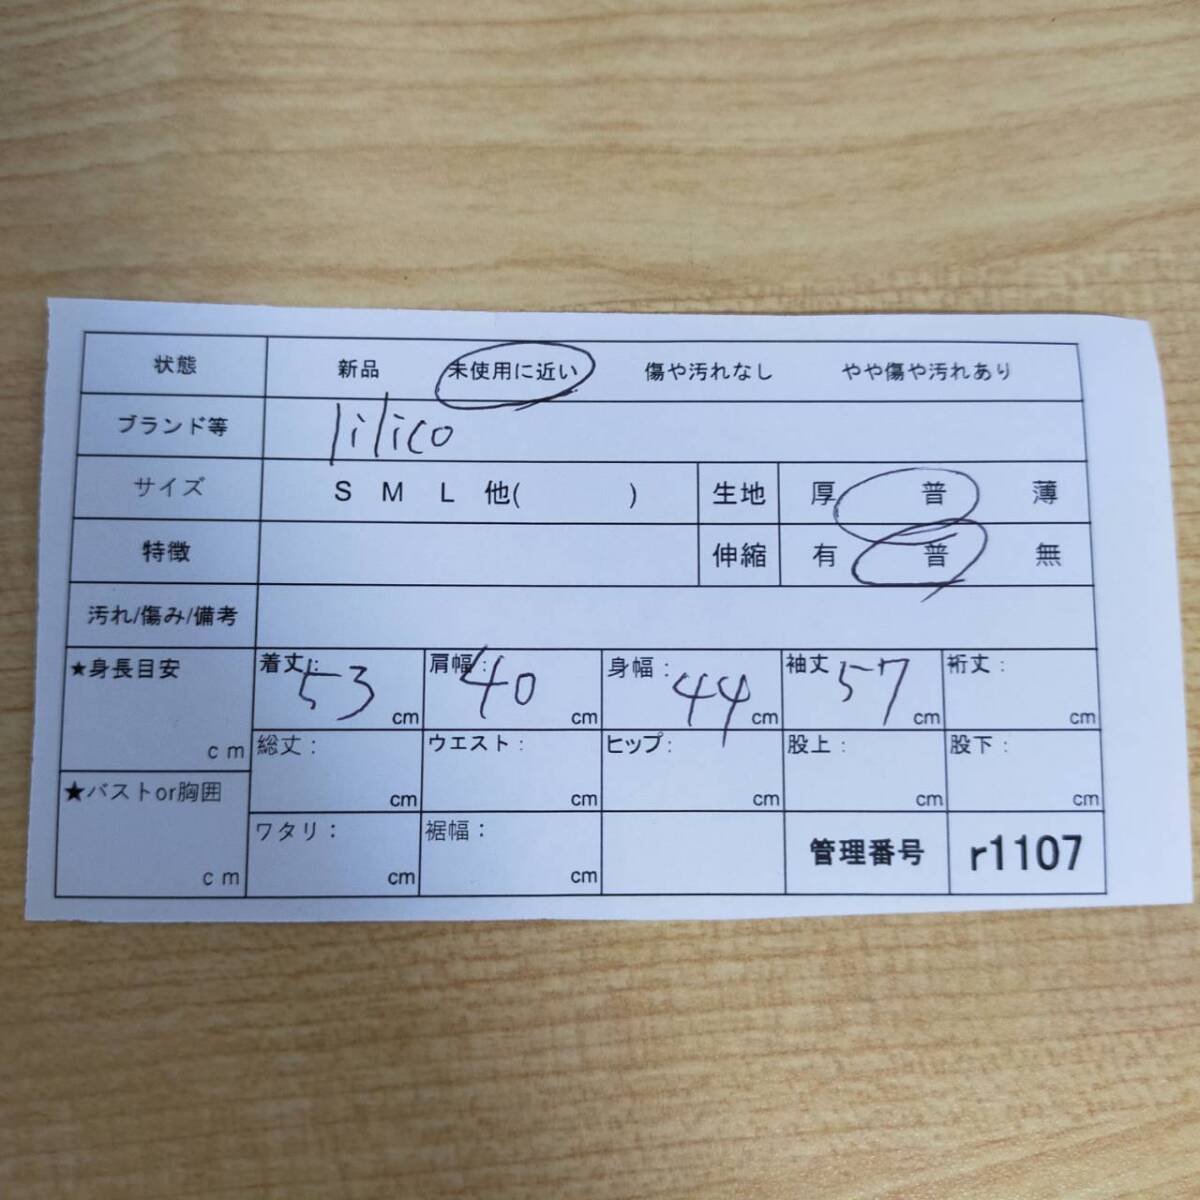 状態 新品 未使用に近い 傷や汚れなし やや傷や汚れあり
ブランド等 lilico
サイズ S M L 他( ) 生地 厚 普 薄
特徴 伸縮 有 普 無
汚れ/傷み/備考
★身長目安 cm
着丈: 53 cm 肩幅: 40 cm 身幅: 44 cm 袖丈 57 cm 裄丈: cm
総丈: cm ウエスト: cm ヒップ: cm 股上: cm 股下: cm
★バストor胸囲 cm
ワタリ: cm 裾幅: cm 管理番号 r1107